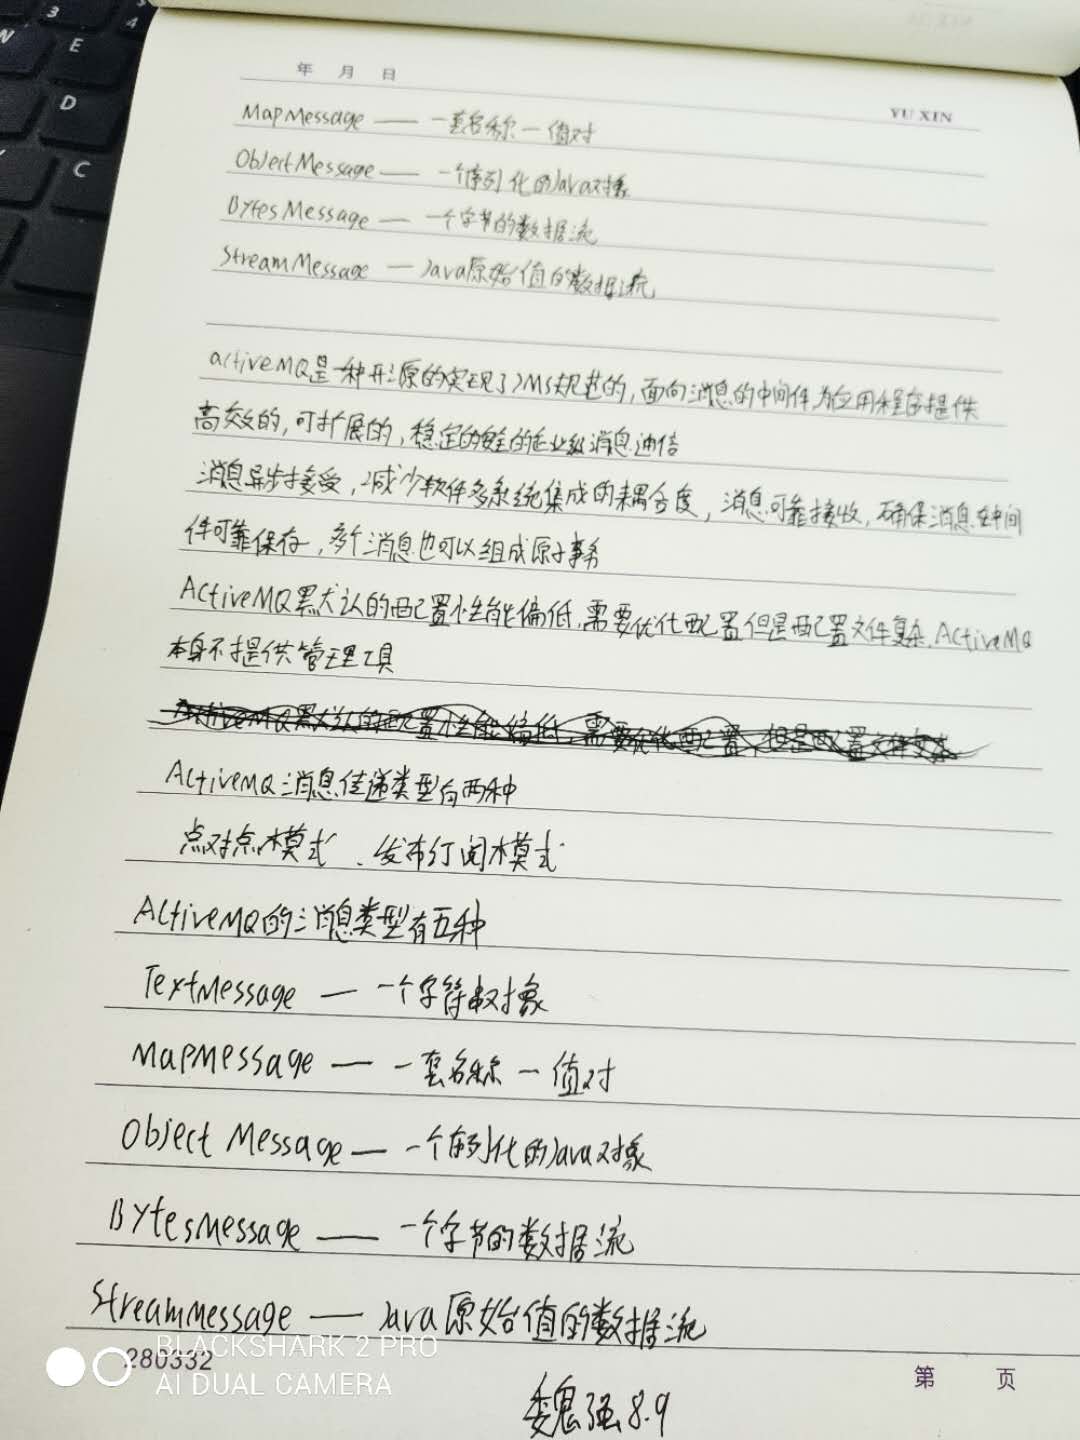 3
4
W
E
D
C
年 月 日
YU XIN
MapMessage —— 一套名称一值对
ObjectMessage —— 一个序列化的Java对象
BytesMessage —— 一个字节的数据流
StreamMessage — Java原始值的数据流
activeMQ是一种开源的实现了JMS规范的,面向消息的中间件,为应用程序提供
高效的,可扩展的,稳定的安全的企业级消息通信
消息异步接受,减少软件多系统集成的耦合度,消息可靠接收,确保消息在中间
件可靠保存,多个消息也可以组成原子事务
ActiveMQ默认的配置性能偏低,需要优化配置但是配置文件复杂,ActiveMQ
本身不提供管理工具
ActiveMQ默认的配置性能偏低,需要优化配置,但是配置文件复杂
ActiveMQ消息传递类型有两种
点对点模式、发布订阅模式
ActiveMQ的消息类型有五种
TextMessage — 一个字符串对象
MapMessage — 一套名称 一 值对
Object Message — 一个序列化的Java对象
BytesMessage —— 一个字节的数据流
StreamMessage —— Java原始值的数据流
280332
BLACKSHARK 2 PRO
AI DUAL CAMERA
第 页
魏强 8.9